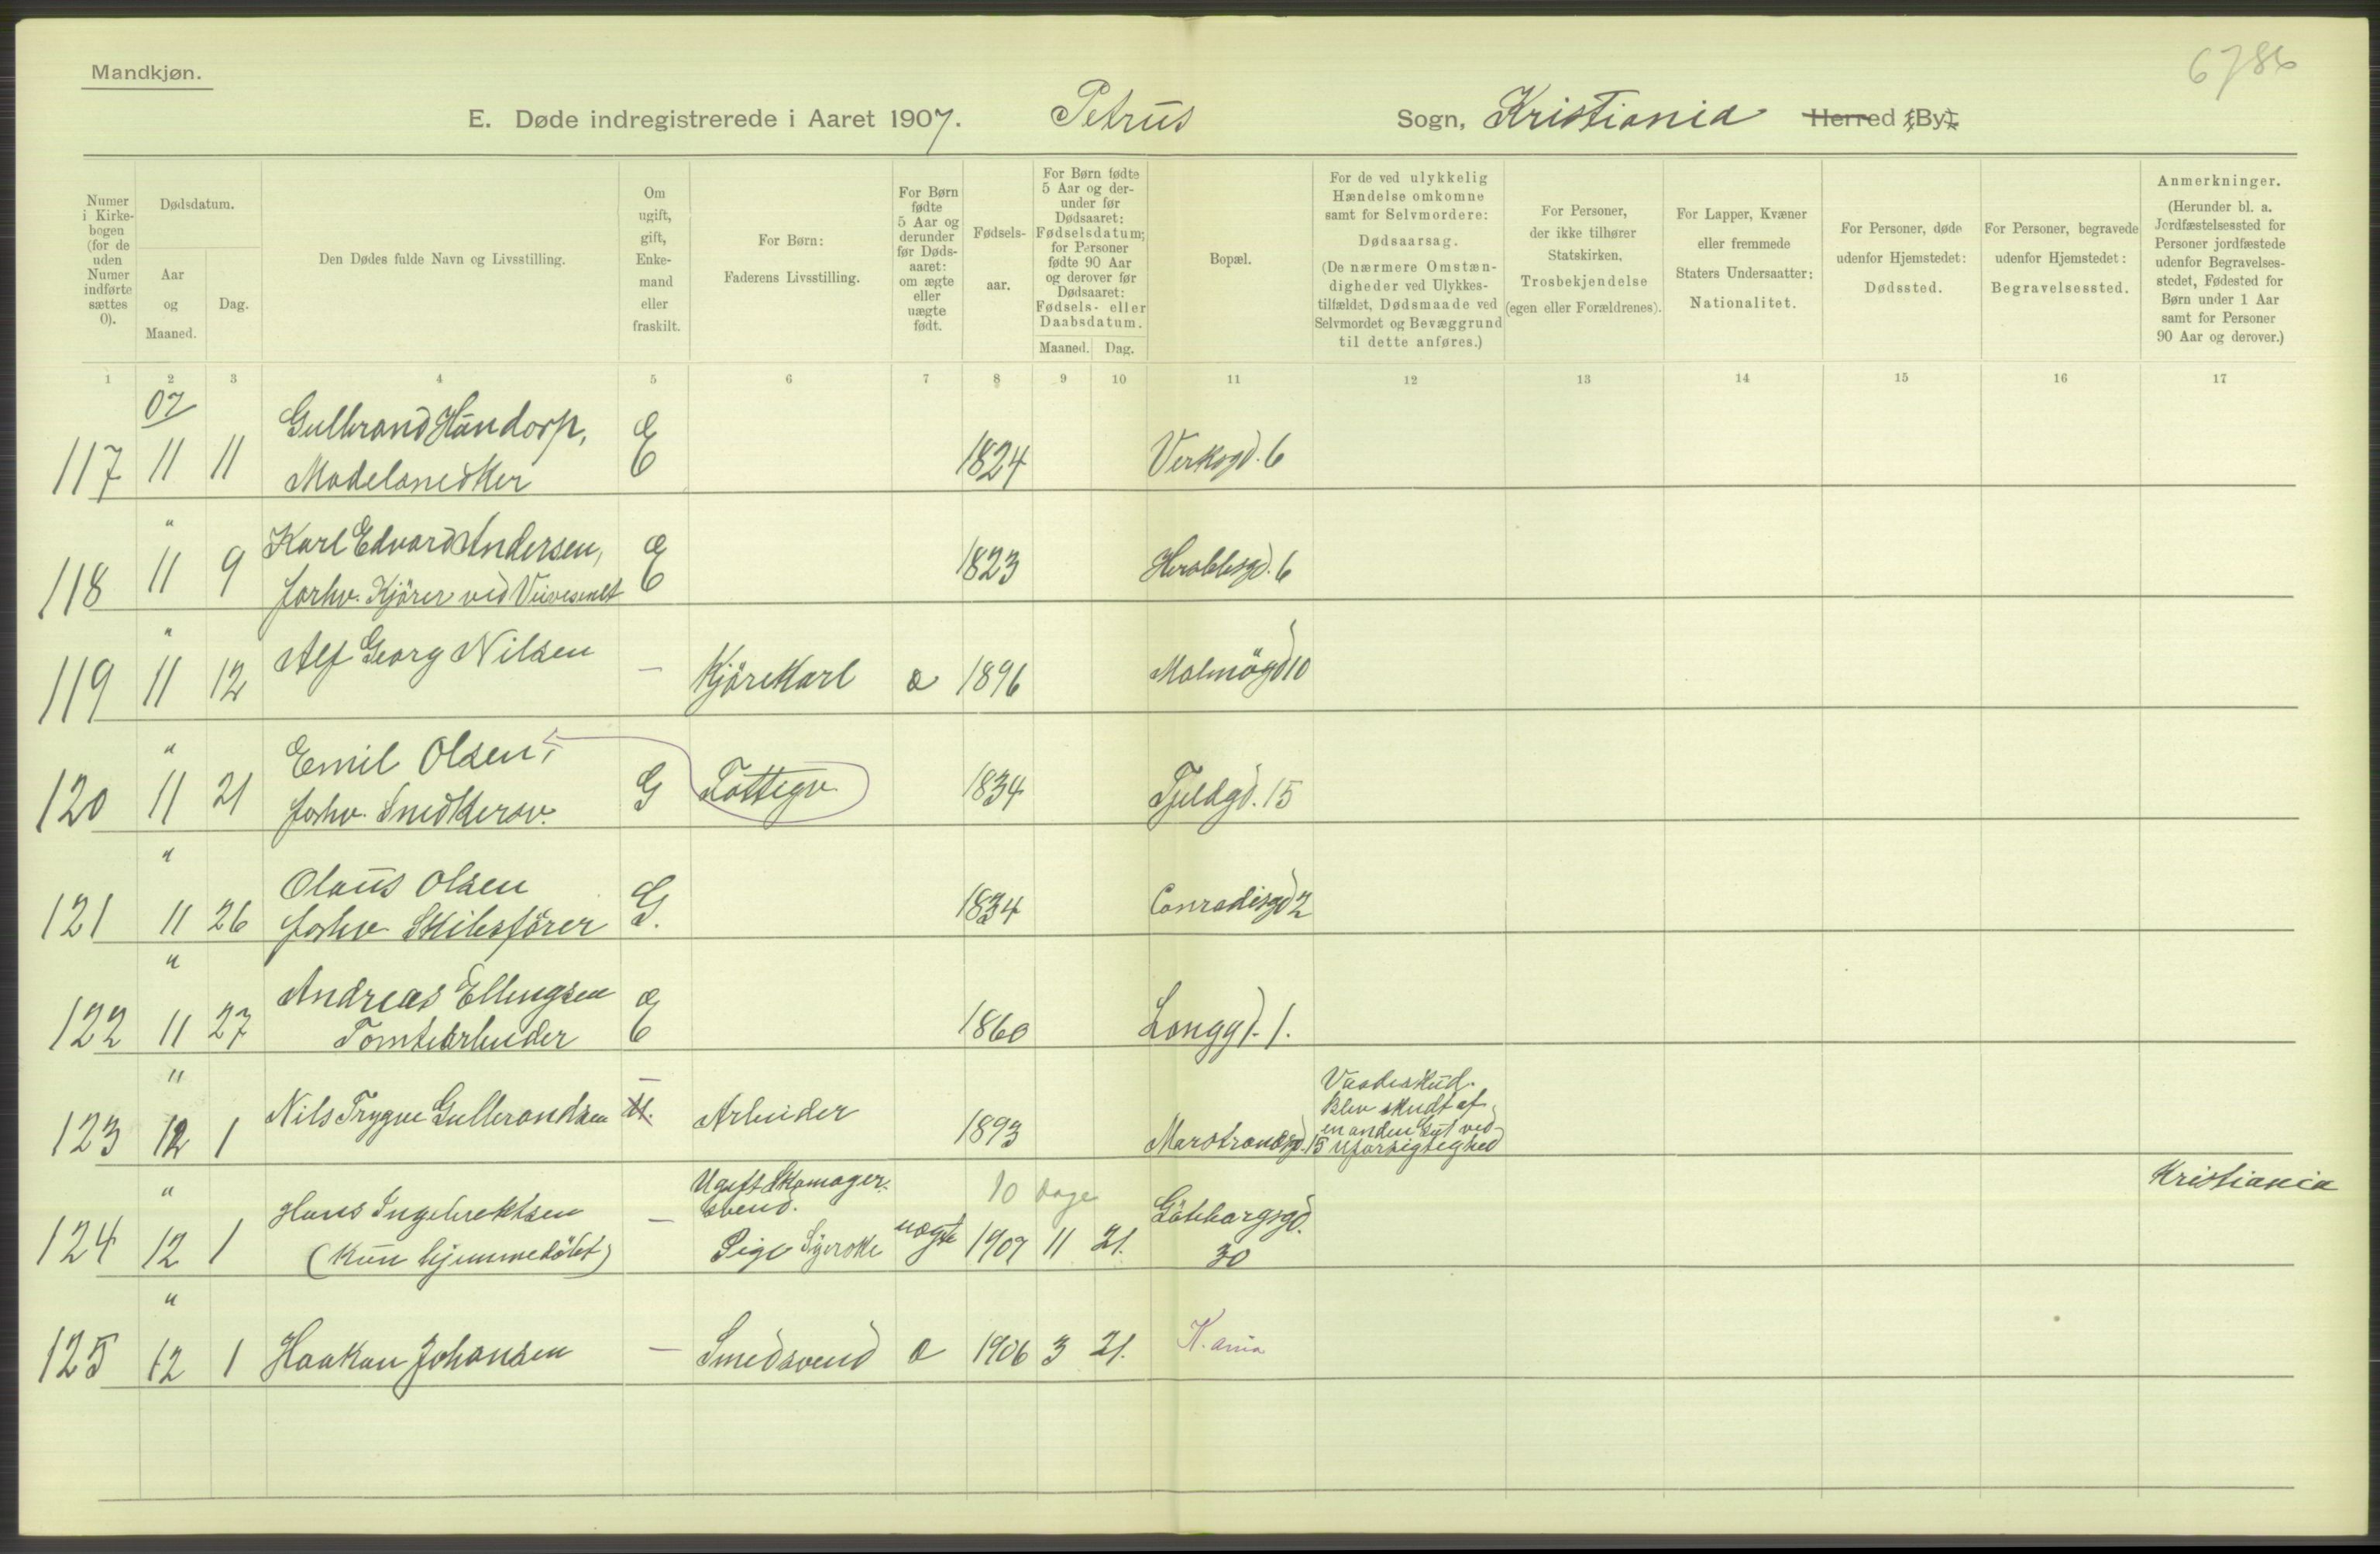 Mandkjøn.
6786
E. Døde indregistrerede i Aaret 1907. Petrus Sogn, Kristiania Herred (By).
Numer i Kirkebogen (for de uden Numer indførte sættes 0).
Dødsdatum.
Aar og Maaned.
Dag.
Den Dødes fulde Navn og Livsstilling.
Om ugift, gift, Enkemand eller fraskilt.
For Børn: Faderens Livsstilling.
For Børn fødte 5 Aar og derunder før Dødsaaret: om ægte eller uægte født.
Fødselsaar.
For Børn fødte 5 Aar og derunder før Dødsaaret: Fødselsdatum; for Personer fødte 90 Aar og derover før Dødsaaret: Fødsels- eller Daabsdatum.
Maaned. Dag.
Bopæl.
For de ved ulykkelig Hændelse omkomne samt for Selvmordere: Dødsaarsag. (De nærmere Omstændigheder ved Ulykkestilfældet, Dødsmaade ved Selvmordet og Bevæggrund til dette anføres.)
For Personer, der ikke tilhører Statskirken, Trosbekjendelse (egen eller Forældrenes).
For Lapper, Kvæner eller fremmede Staters Undersaatter: Nationalitet.
For Personer, døde udenfor Hjemstedet: Dødssted.
For Personer, begravede udenfor Hjemstedet: Begravelsessted.
Anmerkninger. (Herunder bl. a. Jordfæstelsessted for Personer jordfæstede udenfor Begravelsesstedet, Fødested for Børn under 1 Aar samt for Personer 90 Aar og derover.)
1 2 3 4 5 6 7 8 9 10 11 12 13 14 15 16 17
07
117 11 11 Gulbrand Handorp, E 1824 Verksgd. 6
Modelsnedker
"
118 11 9 Karl Edvard Andersen, E 1823 Herslebsgd. 6
forhv. Kjörer ved Veivesenet
"
119 11 12 Alf Georg Nilsen — Kjörekarl æ 1896 Malmögd 10
"
120 11 21 Emil Olsen, G Fattigv. 1834 Tjeldgd. 15
forhv. Snedkersv.
"
121 11 26 Olaus Olsen G. 1834 Conradisgd 2
forhv. Skibsförer
"
122 11 27 Andreas Ellingsen E 1860 Langgd. 1.
Tomtearbeider
"
123 12 1 Nils Trygve Gulbrandsen U. — Arbeider 1893 Marstrandsgd. 15
Vaadeskud.
Blev skudt af
en anden Gut ved
Uforsigtighed
"
124 12 1 Hans Ingebrektsen — Ugift Skomager-
svend.
10 dage
Kristiania
(Kun hjemmedöbt) Pige Syerske uægte 1907 11 21. Göteborgsgd.
30
"
125 12 1 Haakon Johansen — Smedsvend æ 1906 3 21. K.ania